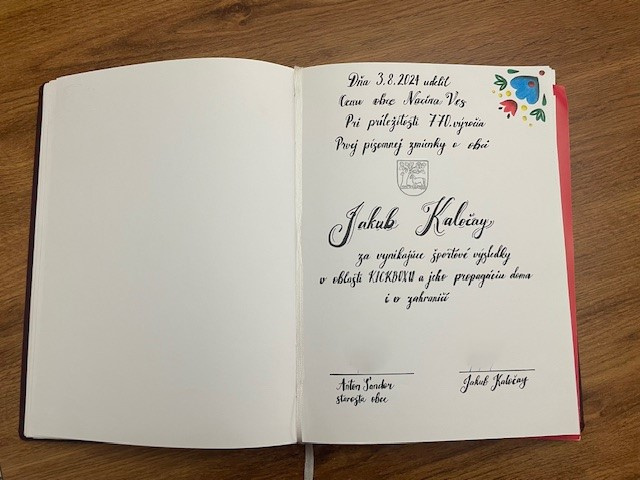 Dňa 3.8.2024 udelil
Cenu obce Nacina Ves
Pri príležitosti 770.výročia
Prvej písomnej zmienky o obci
Jakub Kaločay
za vynikajúce športové výsledky
v oblasti KICKBOXU a jeho propagáciu doma
i v zahraničí
Anton Šandor
starosta obce
Jakub Kaločay